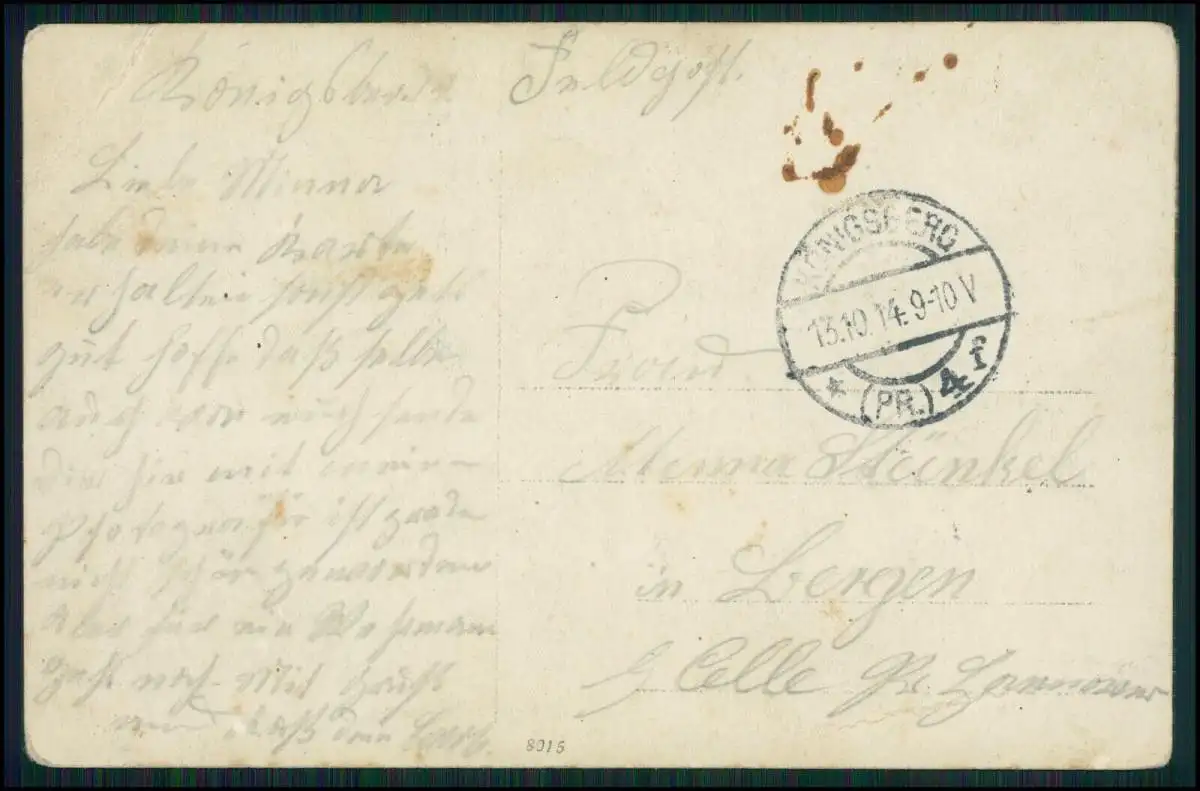 Königsberg
Feldpost.
Liebe Minna
habe deine Karte
erhalten sonst geht
gut hoffe daß selbe
auch von
dir hir mit meine
Photografie ist grade
nicht schön geworden
Aber für ein
geht noch. Mit Gruß
und Kuß dein
KÖNIGSBERG
13.10.14. 9-10 V
* (PR.) 4 f
Frau
Minna Stünkel
in Bergen
b/ Celle Pr. Hannover
8015